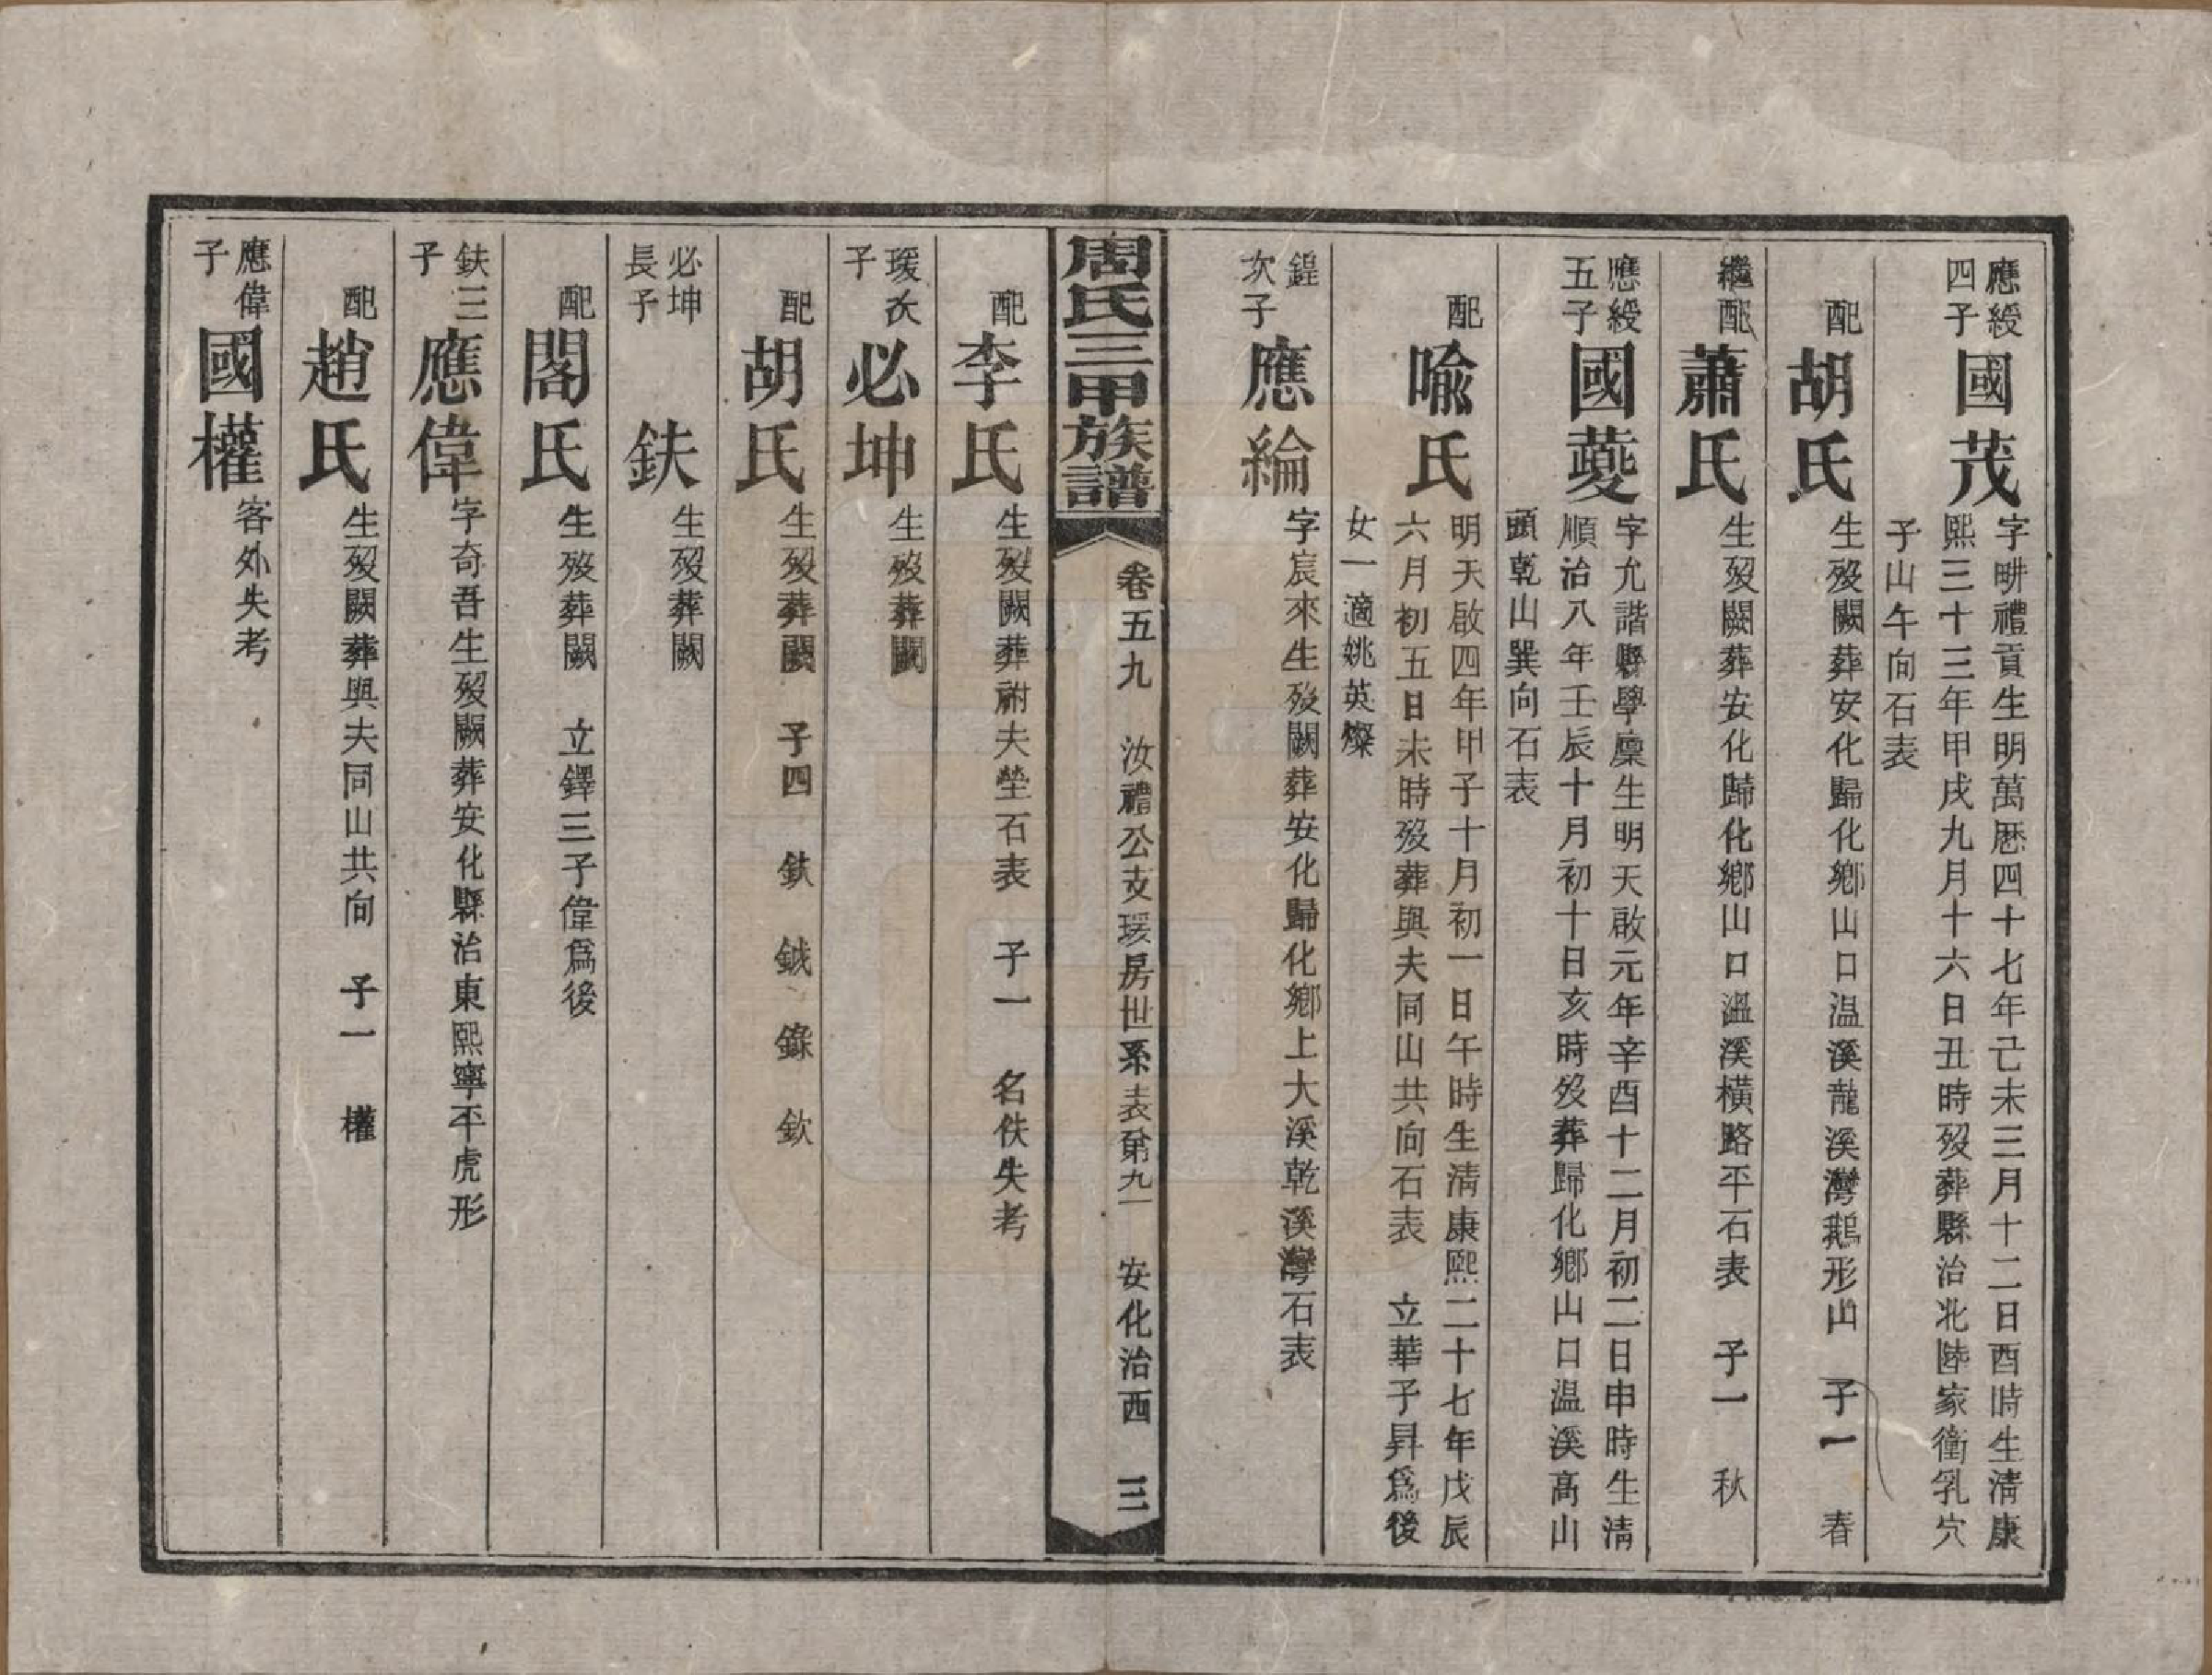 應綬四子
國茂
字畊禮貢生明萬厯四十七年己未三月十二日酉時生淸康
熙三十三年甲戌九月十六日丑時歿葬縣治北陸家衝乳穴
子山午向石表
配
胡氏
生歿闕葬安化歸化鄉山口温溪龍溪灣鵝形山 子一 春
繼配
蕭氏
生歿闕葬安化歸化鄉山口溫溪橫路平石表 子一 秋
應綬五子
國薆
字允諧縣學廩生明天啟元年辛酉十二月初二日申時生淸
順治八年壬辰十月初十日亥時歿葬歸化鄉山口温溪高山
頭乾山巽向石表
配
喩氏
明天啟四年甲子十月初一日午時生淸康熙二十七年戊辰
六月初五日未時歿葬與夫同山共向石表 立華子昇爲後
女一適姚英燦
鍠次子
應綸
字宸來生歿闕葬安化歸化鄉上大溪乾溪灣石表
周氏三甲族譜
卷五九 汝禮公支瑗房世系表第九一 安化治西 三
配
李氏
生歿闕葬祔夫塋石表 子一 名佚失考
瑗次子
必坤
生歿葬闕
配
胡氏
生歿葬闕 子四 鈇 鉞 錄 欽
必坤長子
鈇
生歿葬闕
配
閣氏
生歿葬闕 立鐸三子偉爲後
鈇三子
應偉
字奇吾生歿闕葬安化縣治東熙寧平虎形
配
趙氏
生歿闕葬與夫同山共向 子一 權
應偉子
國權
客外失考